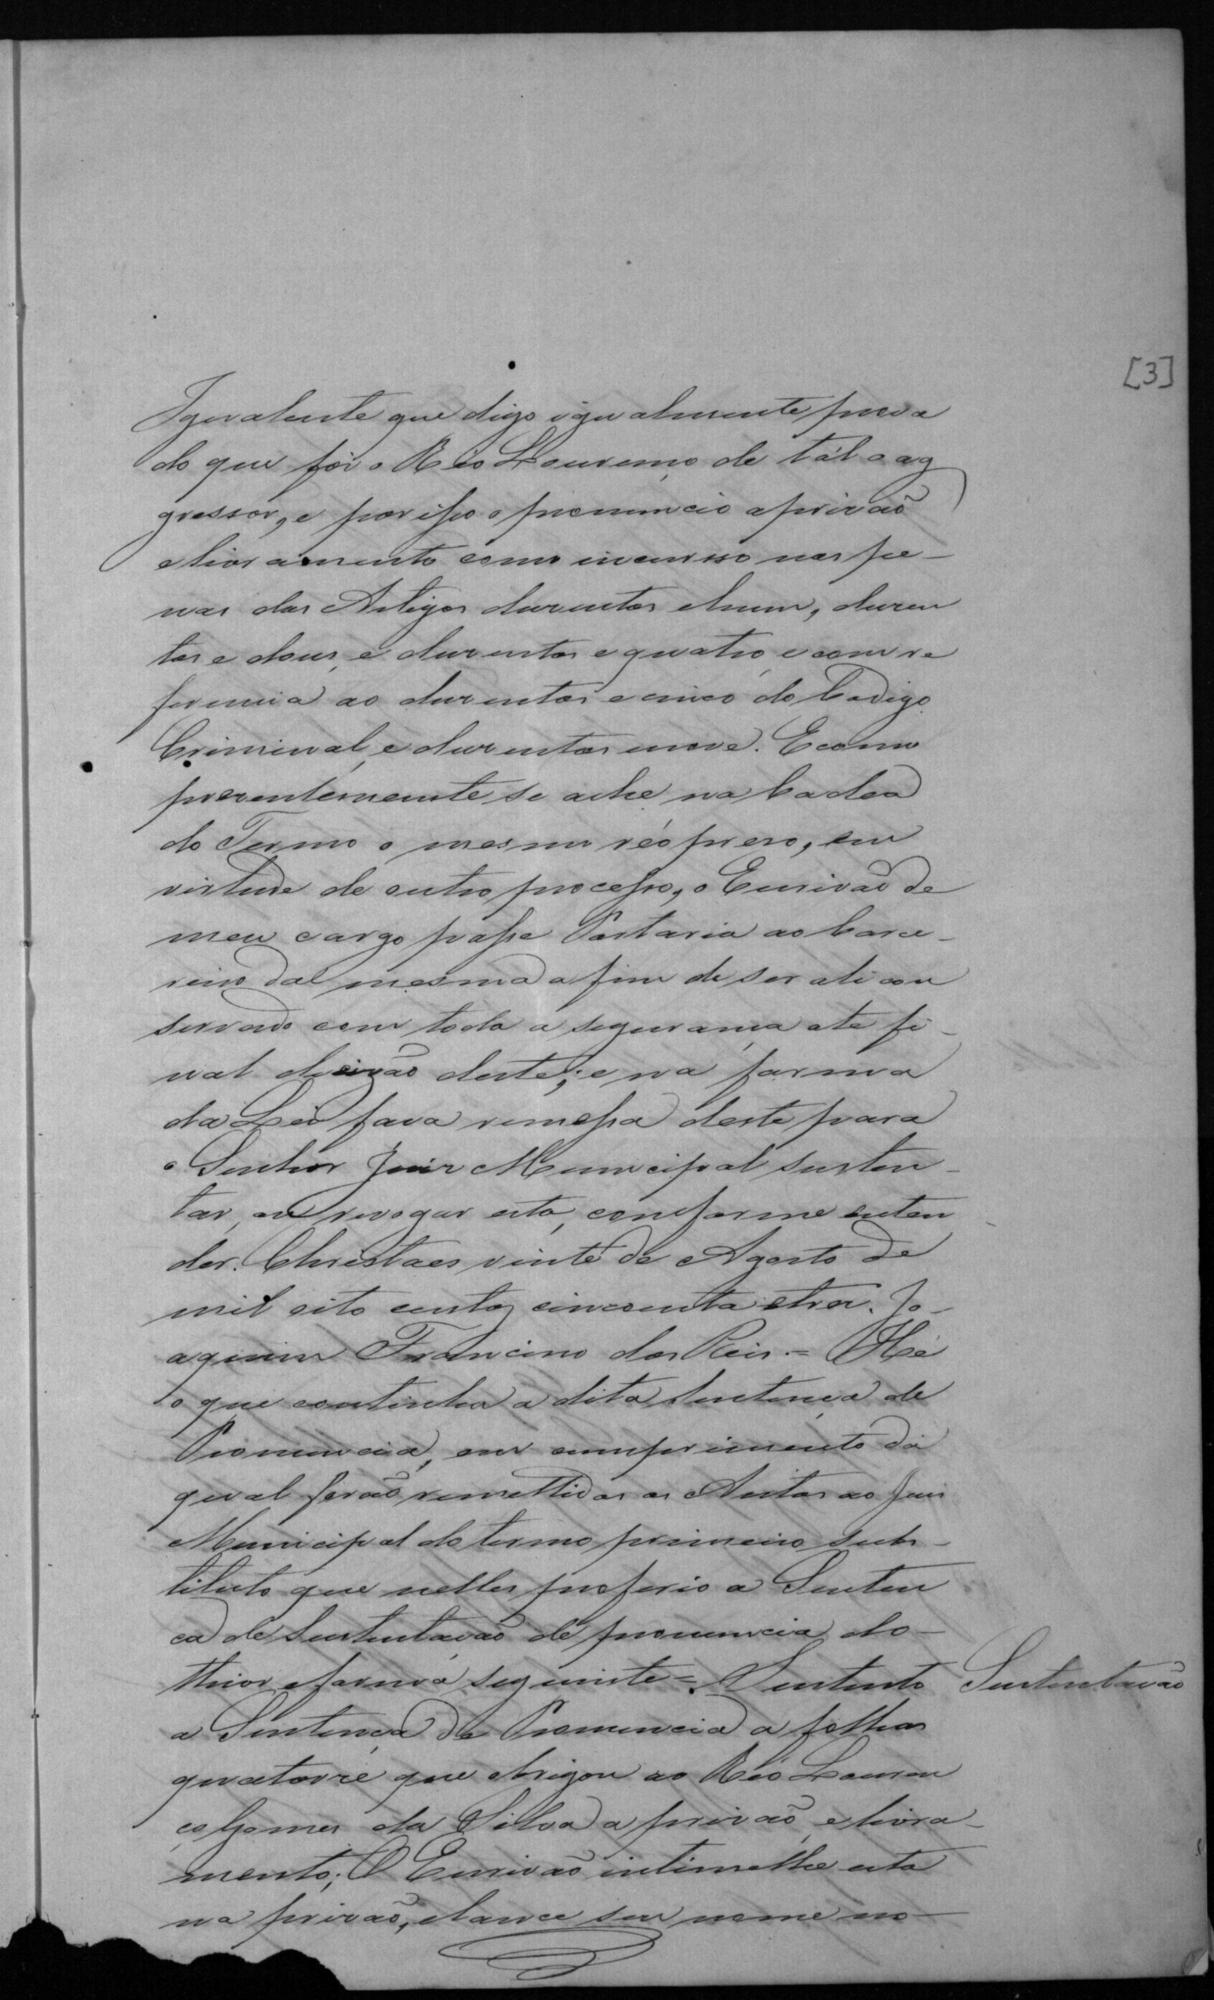 [3]
Igualente que digo igualmente prova
do que foi o Réo Lourenço de tál o ag
gressor, e por isso o pronuncio a prizaõ
e livramento como incurso nas pe-
nas dos Artigos duzentos e hum, duzen
tos e dous, e duzentos e quatro, e com re
ferencia ao duzentos e cinco do Codigo
Criminal, e duzentos e nove. E como
prezentemente se ache na Cadea
do Termo o mesmo réo prezo, em
virtude de outro processo, o Escrivaõ de
meu cargo passe Portaria ao Carce-
reiro da mesma a fim de ser ali con
servado com toda a segurança ate fi-
nal decizaõ deste; e na forma
da Lei faça remessa deste para
o Senhor Juiz Municipal susten-
tar, ou revogar esta, conforme enten
der. Christaes vinte de Agosto de
mil oito centos cincoenta e tres. Jo-
aquim Francino dos Reis. = Hé
o que continha a dita Sentença de
Pronuncia, em cumprimento da
qual foraõ remettidos os Autos ao Juis
Municipal do termo primeiro subs-
tituto que nelles proferio a Senten
ça de Sustentaçaõ de pronuncia do
theor e forma seguinte = Sustento
Sustentaçaõ
a Sentença de Pronuncia a folhas
quatorze que obrigou ao Réo Louren
ço Gomes da Silva a prizaõ, e livra-
mento; O Escrivaõ intimelhe esta
na prizaõ, e lance seu nome no